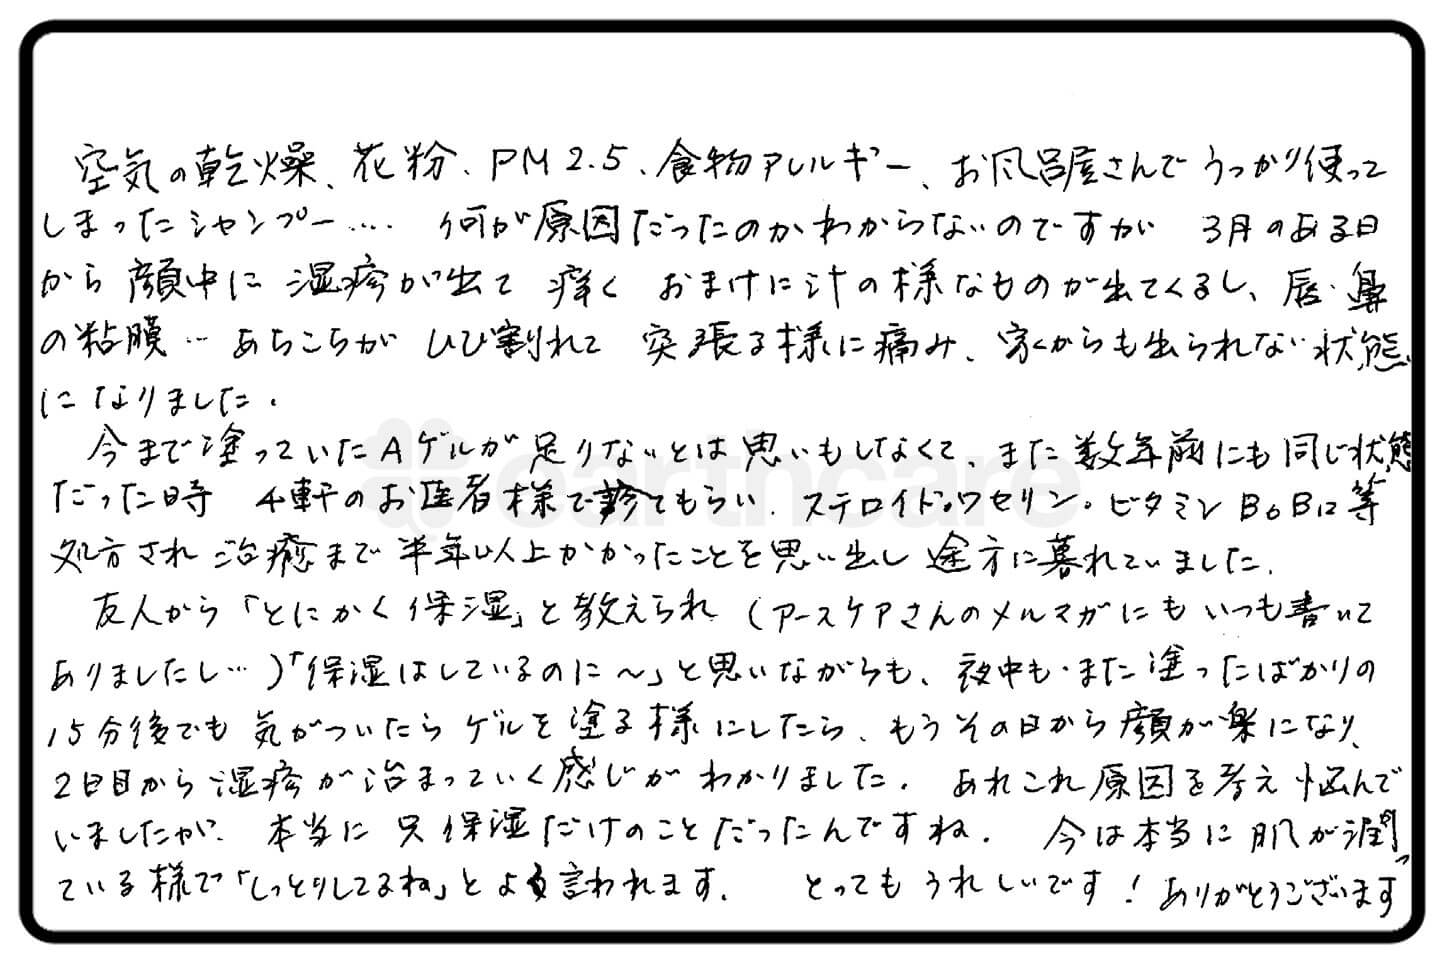 空気の乾燥、花粉、PM2.5、食物アレルギー、お風呂屋さんでうっかり使って
しまったシャンプー… 何が原因だったのかわからないのですが 3月のある日
から顔中に 湿疹が出て 痒く おまけに汁の様なものが出てくるし、唇・鼻
の粘膜…あちこちが ひび割れて 突張る様に痛み、家からも出られない状態
になりました。
今まで塗っていたAゲルが足りないとは思いもしなくて、また数年前にも同じ状態
だった時 4軒のお医者様で診てもらい、ステロイド・ワセリン・ビタミンB6B12等
処方され 治癒まで半年以上かかったことを思い出し 途方に暮れていました。
友人から「とにかく保湿」と教えられ (アースケアさんのメルマガにもいつも書いて
ありましたし…)「保湿はしているのに〜」と思いながらも、夜中も・また塗ったばかりの
15分後でも 気がついたらゲルを塗る様にしたら、もうその日から顔が楽になり、
2日目から湿疹が治まっていく感じがわかりました。あれこれ原因を考え悩んで
いましたが、本当に只保湿だけのことだったんですね。 今は本当に肌が潤っ
ている様で「しっとりしてるね」とよく言われます。 とってもうれしいです！ありがとうございます
earthcare